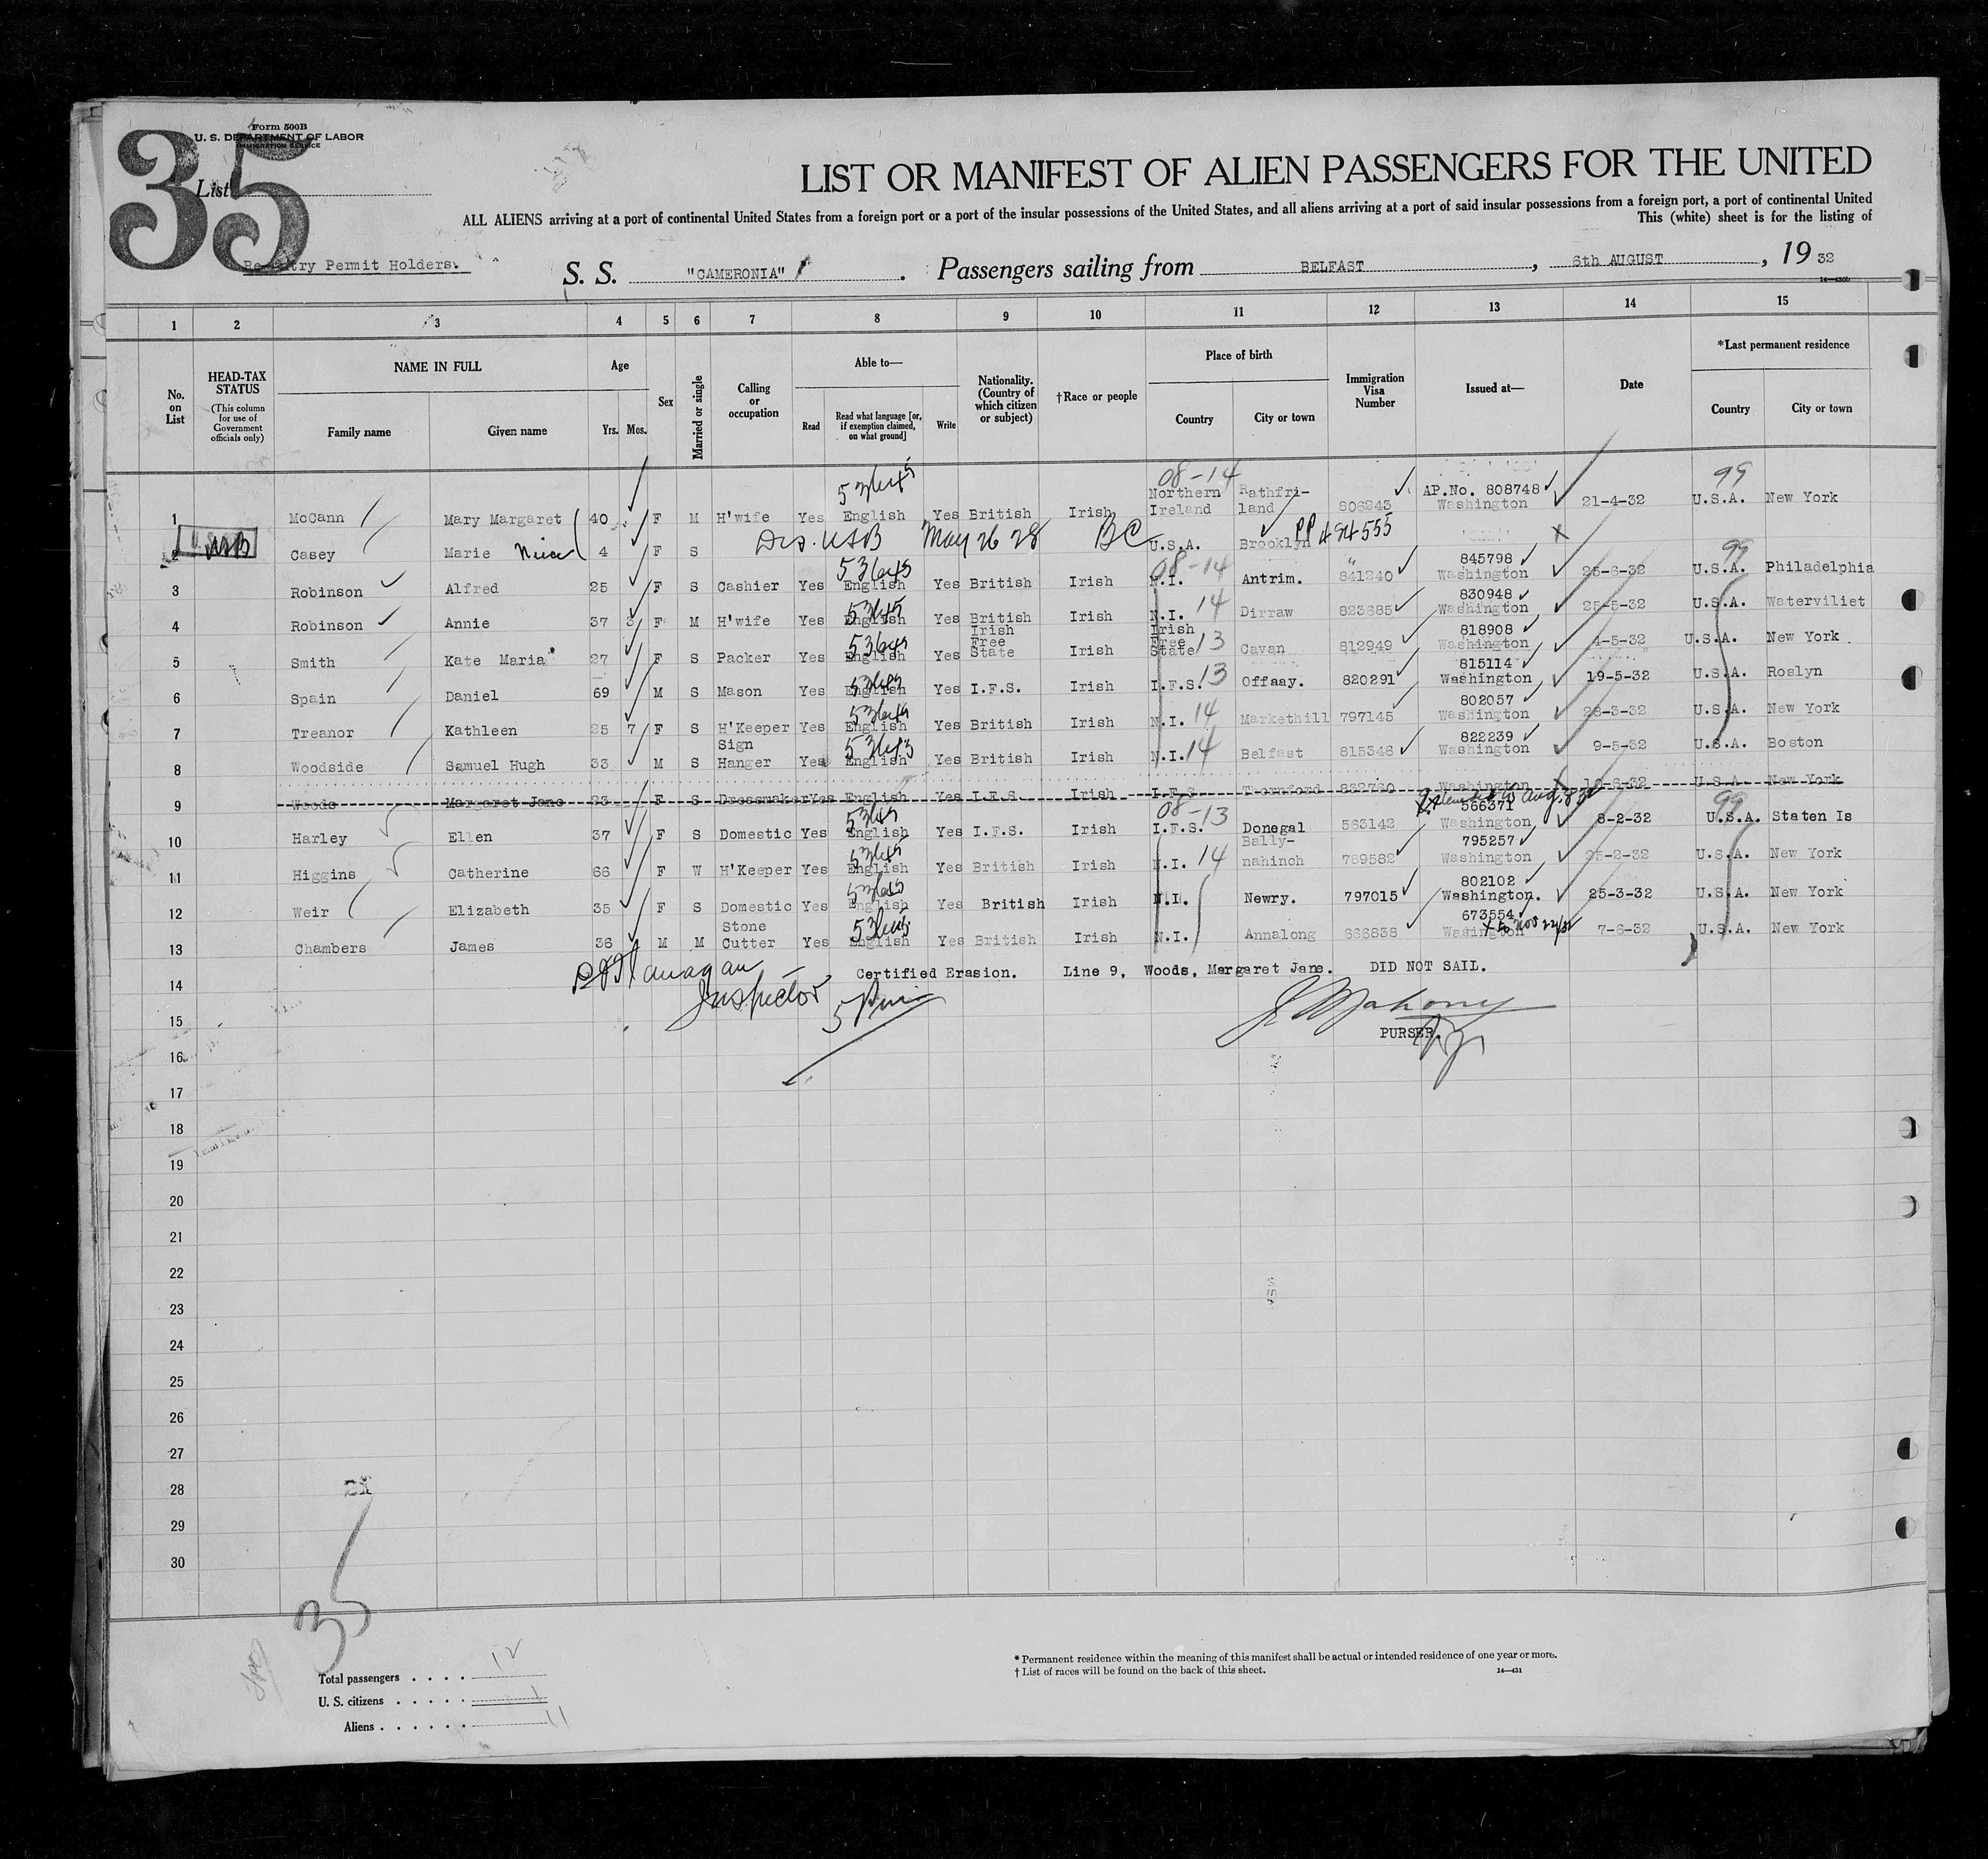 35
Form 500B
U. S. DEPARTMENT OF LABOR
IMMIGRATION SERVICE
List
LIST OR MANIFEST OF ALIEN PASSENGERS FOR THE UNITED
ALL ALIENS arriving at a port of continental United States from a foreign port or a port of the insular possessions of the United States, and all aliens arriving at a port of said insular possessions from a foreign port, a port of continental United
This (white) sheet is for the listing of
Re-Entry Permit Holders.
S. S. "CAMERONIA" . Passengers sailing from BELFAST , 6th AUGUST , 19 32
1 2 3 4 5 6 7 8 9 10 11 12 13 14 15
No. on List
HEAD-TAX STATUS (This column for use of Government officials only)
NAME IN FULL Family name Given name
Age Yrs. Mos.
Sex
Married or single
Calling or occupation
Able to— Read Read what language [or, if exemption claimed, on what ground] Write
Nationality. (Country of which citizen or subject)
†Race or people
Place of birth Country City or town
Immigration Visa Number
Issued at—
Date
*Last permanent residence Country City or town
53645 08-14 AP.No. 808748 99
1 McCann Mary Margaret 40 F M H'wife Yes English Yes British Irish Northern Ireland Rathfri-land 806243 Washington 21-4-32 U.S.A. New York
2 USB Casey Marie Niece 4 F S Dis. USB May 26 28 BC U.S.A. Brooklyn PP 494555
53645 08-14 845798 99
3 Robinson Alfred 25 F S Cashier Yes English Yes British Irish N.I. Antrim. 841240 Washington 25-6-32 U.S.A. Philadelphia
53645 830948
4 Robinson Annie 37 3 F M H'wife Yes English Yes British Irish N.I. 14 Dirraw 823685 Washington 25-5-32 U.S.A. Waterviliet
53645 818908
5 Smith Kate Maria 27 F S Packer Yes English Yes Irish Free State Irish Irish Free State 13 Cavan 812949 Washington 4-5-32 U.S.A. New York
53645 815114
6 Spain Daniel 69 M S Mason Yes English Yes I.F.S. Irish I.F.S. 13 Offaay. 820291 Washington 19-5-32 U.S.A. Roslyn
53645 802057
7 Treanor Kathleen 25 7 F S H'Keeper Yes English Yes British Irish N.I. 14 Markethill 797145 Washington 28-3-32 U.S.A. New York
53645 822239
8 Woodside Samuel Hugh 33 M S Sign Hanger Yes English Yes British Irish N.I. 14 Belfast 815346 Washington 9-5-32 U.S.A. Boston
9 Woods Margaret Jane 23 F S Dressmaker Yes English Yes I.F.S. Irish I.F.S. Thornford 832730 Washington 10-6-32 U.S.A. New York
53645 08-13 566371 99
10 Harley Ellen 37 F S Domestic Yes English Yes I.F.S. Irish I.F.S. Donegal 563142 Washington 8-2-32 U.S.A. Staten Is
53645 795257
11 Higgins Catherine 66 F W H'Keeper Yes English Yes British Irish N.I. 14 Bally-nahinch 789582 Washington 25-2-32 U.S.A. New York
53645 802102
12 Weir Elizabeth 35 F S Domestic Yes English Yes British Irish N.I. Newry. 797015 Washington. 25-3-32 U.S.A. New York
53645 673554
13 Chambers James 36 M M Stone Cutter Yes English Yes British Irish N.I. Annalong 666838 Washington 7-6-32 U.S.A. New York
14 Certified Erasion. Line 9, Woods, Margaret Jane. DID NOT SAIL.
Inspector
15
PURSER.
16
17
18
19
20
21
22
23
24
25
26
27
28
29
30
35
Total passengers . . . . 12
U. S. citizens . . . . . 1
Aliens . . . . . . 11
* Permanent residence within the meaning of this manifest shall be actual or intended residence of one year or more.
† List of races will be found on the back of this sheet.
14—431